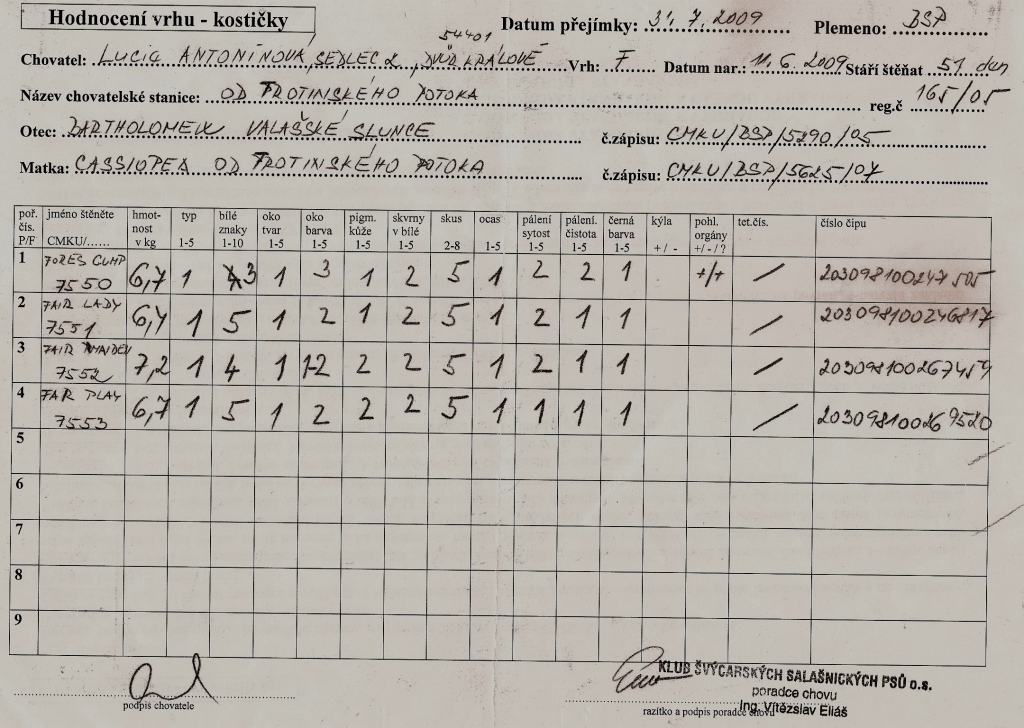 Hodnocení vrhu - kostičky
Datum přejímky: 31. 7. 2009 Plemeno: BSP
54401
Chovatel: LUCIA ANTONÍNOVÁ, SEDLEC 2, DVŮR KRÁLOVÉ Vrh: F Datum nar.: 11. 6. 2009 Stáří štěňat 51 dnů
Název chovatelské stanice: OD TROTINSKÉHO POTOKA reg.č 165/05
Otec: BARTHOLOMEW VALAŠSKÉ SLUNCE č.zápisu: CMKU/BSP/5290/05
Matka: CASSIOPEA OD TROTINSKÉHO POTOKA č.zápisu: CMKU/BSP/5625/07
poř. čís. P/F jméno štěněte CMKU/...... hmot-nost v kg typ 1-5 bílé znaky 1-10 oko tvar 1-5 oko barva 1-5 pigm. kůže 1-5 skvrny v bílé 1-5 skus 2-8 ocas 1-5 pálení sytost 1-5 pálení. čistota 1-5 černá barva 1-5 kýla + / - pohl. orgány +/-/? tet.čís. číslo čipu
1 7550 6,7 1 3 1 3 1 2 5 1 2 2 1 +/+ / 203098100247505
2 FAIR LADY 7551 6,4 1 5 1 2 1 2 5 1 2 1 1 / 203098100246817
3 FAIR MAIDEN 7552 7,2 1 4 1 1-2 2 2 5 1 2 1 1 / 203098100267459
4 FAIR PLAY 7553 6,7 1 5 1 2 2 2 5 1 1 1 1 / 203098100269520
5
6
7
8
9
KLUB ŠVÝCARSKÝCH SALAŠNICKÝCH PSŮ o.s.
poradce chovu
Ing. Vítězslav Eliáš
podpis chovatele
razítko a podpis poradce chovu